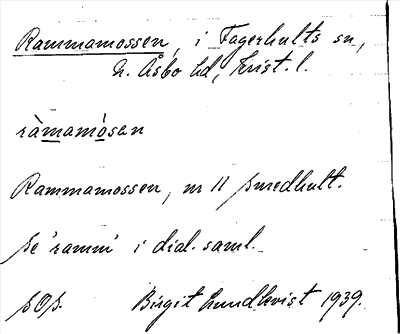 Rammamossen, i Fagerhults sn,
N. Åsbo hd, Krist. l.
ràmamósen
Rammamossen, nr 11 Smedhult.
Se 'ramm' i dial. saml.
sOs. Birgit Lundkvist 1939.